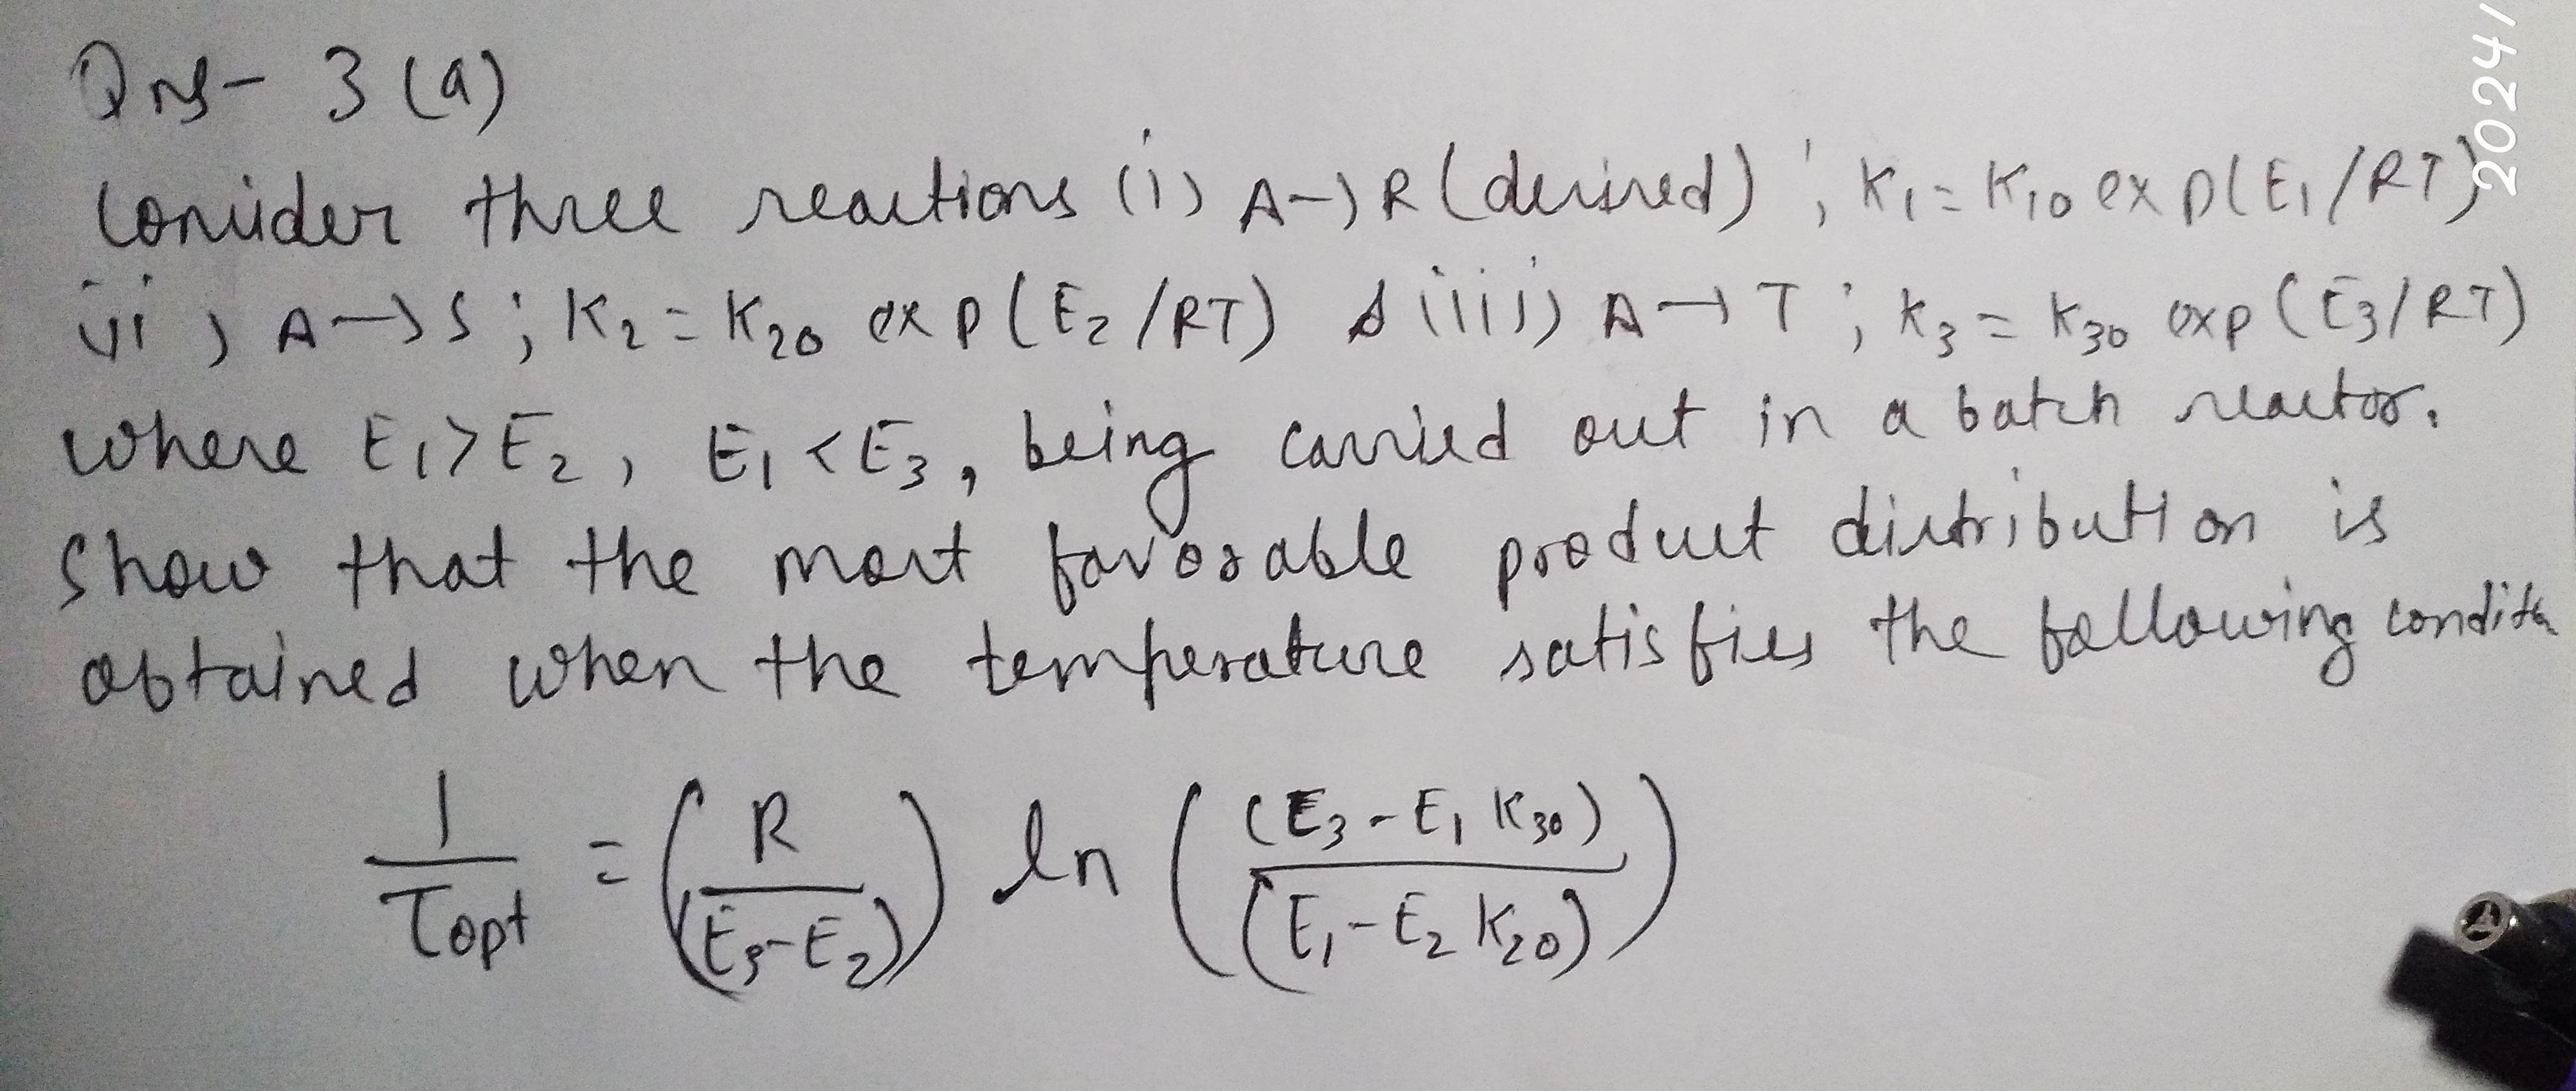 Qns- 3 (a)
Consider three reactions (i) A→R (desired) ; K₁ = K₁₀ exp(E₁/RT)
ii) A→S ; K₂ = K₂₀ exp(E₂/RT) & iii) A→T ; K₃ = K₃₀ exp(E₃/RT)
where E₁>E₂, E₁<E₃, being carried out in a batch reactor.
Show that the most favorable product distribution is
obtained when the temperature satisfies the following
1/Topt = (R/(E₃-E₂)) ln ((E₃-E₁ K₃₀)/(E₁-E₂ K₂₀))
2024/